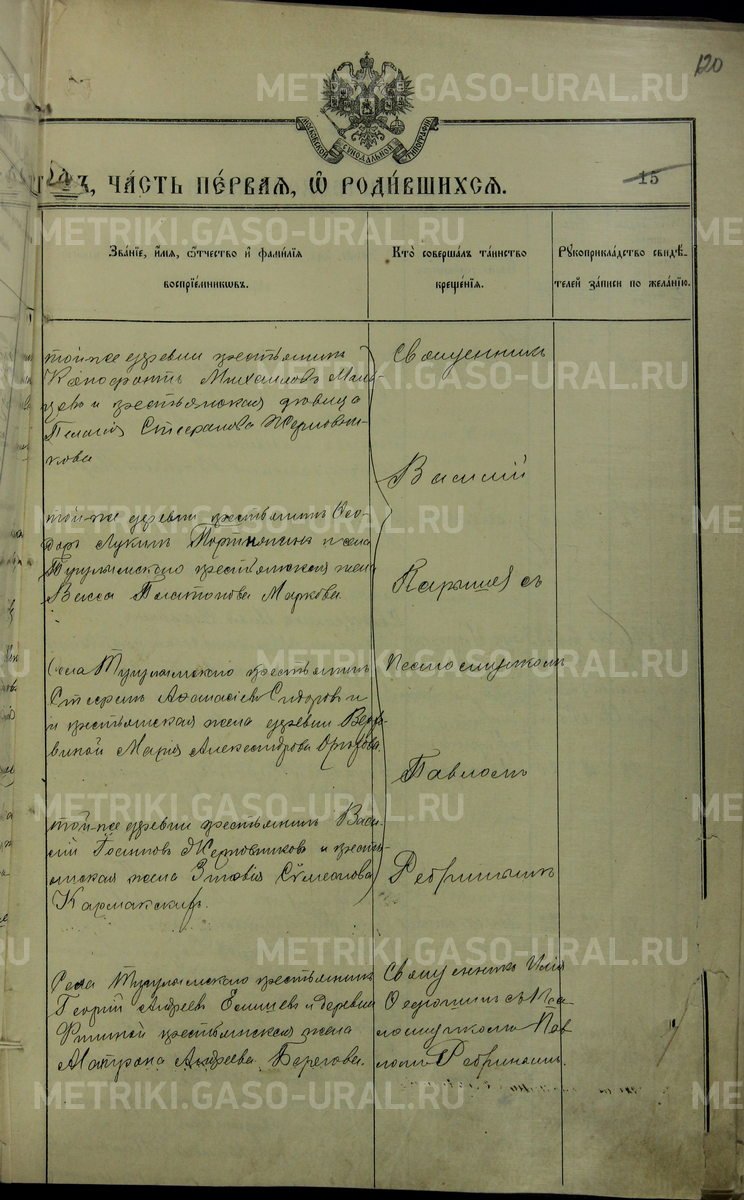 120
МОСКОВСКОЙ СѴНОДАЛЬНОЙ ТИПОГРАФІИ
ЧА́СТЬ ПЕ́РВАЯ, Ѡ РОДИ́ВШИХСЯ.
15
Зва́нїе, и́мѧ, ѻ́тчество и҆ фами́лїѧ
воспрїе́мникѡвъ.
Кто̀ соверша́лъ та́инство
креще́нїѧ.
Рꙋкоприкла́дство свидѣ́-
телей за́писи по жела́нїю.
той-же деревни крестьянинъ
Михаиловъ Маль-
цевъ и крестьянская дѣвица
Пелагія Стефанова Жерновни-
кова
Священникъ
Василій
той-же деревни крестьянинъ Ѳео-
доръ Лукинъ Портнягинъ и села
Тугулымскаго крестьянская жена
Васса Платонова Маркова.
Карышевъ съ
Села Тугулымскаго крестьянинъ
Стефанъ Аѳанасіевъ Сидоровъ и
и крестьянская жена деревни
Марія Александрова
псаломщикомъ
Павломъ
той-же деревни крестьянинъ Васи-
лій Іосифовъ Жерновниковъ и кресть-
янская жена Зиновія Сѵмеонова
Кармакскихъ.
Ребринымъ
Села Тугулымскаго крестьянинъ
Георгій Андреевъ Елишевъ и деревни
крестьянская жена
Матрона Андреева Берегова.
Священникъ Илія
съ Пса-
ломщикомъ Пав-
ломъ Ребринымъ.
METRIKI.GASO-URAL.RU